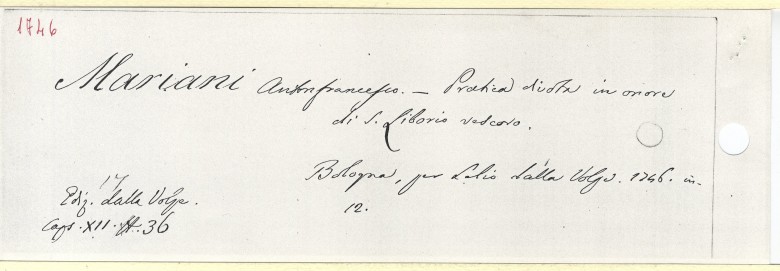 1746
Mariani Antonfrancesco. — Pratica divota in onore
di S. Liborio vescovo.
Bologna, per Lelio dalla Volpe. 1746. in-
12.
17
Ediz. dalla Volpe.
Caps. XII. N. 36